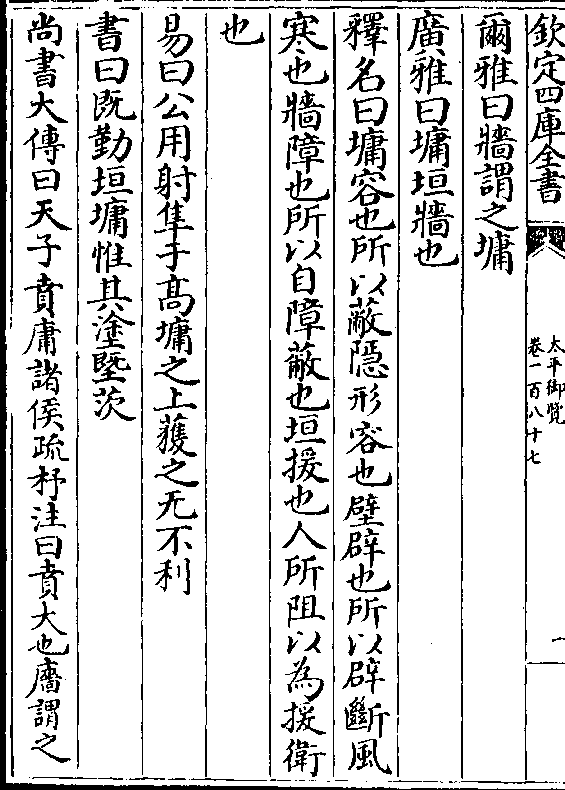 欽定四庫全書
太平御覽
卷一百八十七
一
爾雅曰牆謂之墉
廣雅曰墉垣牆也
釋名曰墉容也所以蔽隱形容也壁辟也所以辟斷風
寒也牆障也所以自障蔽也垣援也人所阻以為援衛
也
易曰公用射隼于高墉之上獲之无不利
書曰既勤垣墉惟其塗塈茨
尚書大傳曰天子賁庸諸侯疏杼注曰賁大也廧謂之